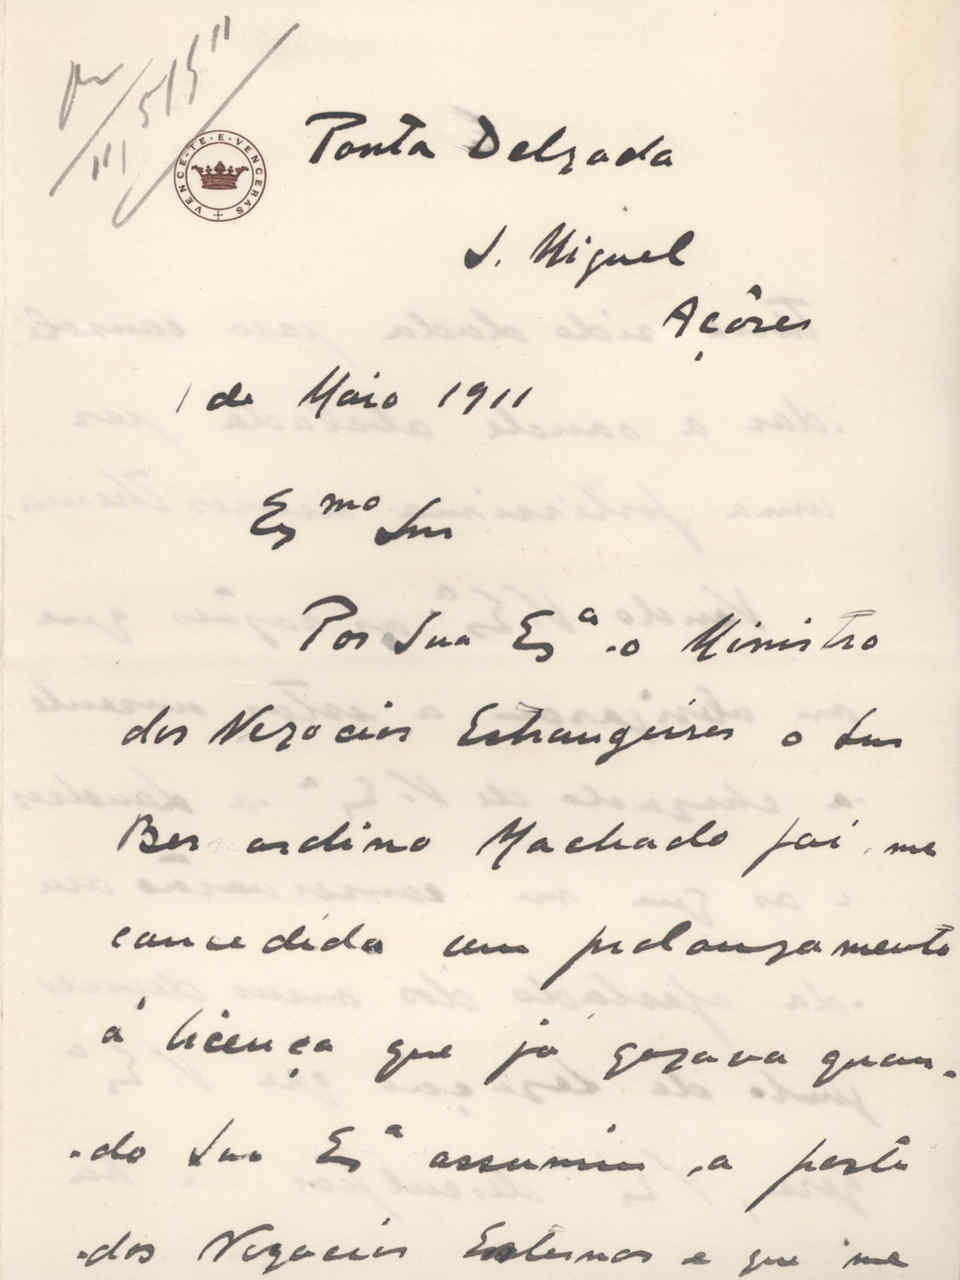 5/5 11
VENCE-TE-E-VENCERAS
Ponta Delgada
S. Miguel
Açôres
1 de Maio 1911
Exmo Snr
Por Sua Exª o Ministro
dos Negocios Estrangeiros o Snr
Bernardino Machado foi-me
concedida um prolongamento
á licença que já gozava quan-
-do Sua Exª assumiu a pasta
-dos Negocios Externos e que me